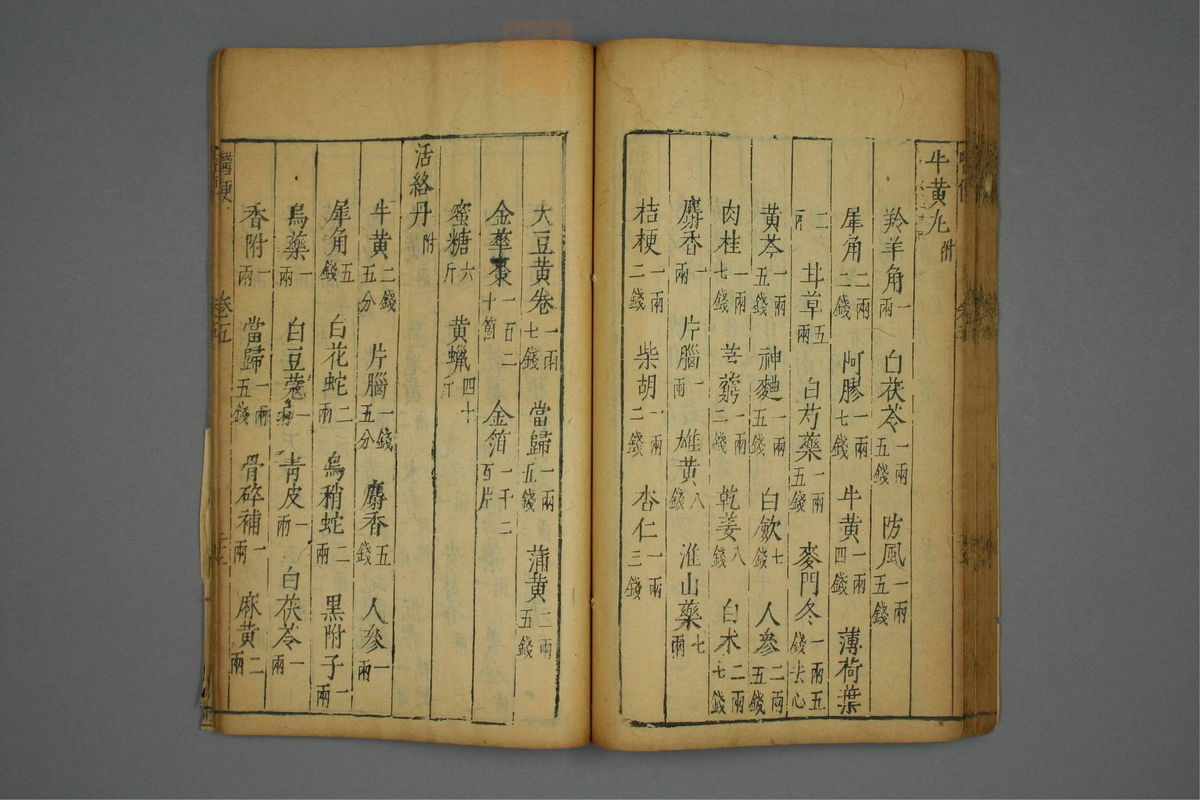 牛黄丸附
羚羊角一兩 白茯苓一兩五錢 防風一兩五錢
犀角二兩二錢 阿膠一兩七錢 牛黄一兩四錢 薄荷葉
二兩 甘草五兩 白芍藥一兩五錢 麥門冬一兩五錢去心
黄芩一兩五錢 神麯一兩五錢 白歛七錢 人參二兩五錢
肉桂一兩七錢 芎藭一兩三錢 乾姜八錢 白朮二兩七錢
麝香一兩 片腦一兩 雄黄八錢 淮山藥七兩
桔梗一兩二錢 柴胡一兩二錢 杏仁一兩三錢
大豆黄卷一兩七錢 當歸一兩五錢 蒲黄二兩五錢
金華棗一百二十箇 金箔一千二百片
蜜糖六斤 黄蠟四十斤
活絡丹附
牛黄二錢五分 片腦一錢五分 麝香五錢 人參一兩
犀角五錢 白花蛇二兩 烏稍蛇二兩 黑附子一兩
烏藥一兩 白豆蔻一兩 青皮一兩 白茯苓一兩
香附一兩 當歸一兩五錢 骨碎補一兩 麻黄二兩
卷五